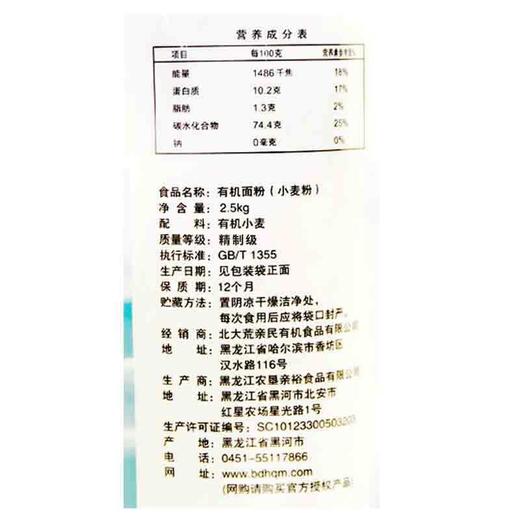 营养成分表
项目 每100克 营养素参考值%
能量 1486千焦 18%
蛋白质 10.2克 17%
脂肪 1.3克 2%
碳水化合物 74.4克 25%
钠 0毫克 0%
食品名称：有机面粉（小麦粉）
净 含 量：2.5kg
配 料：有机小麦
质量等级：精制级
执行标准：GB/T 1355
生产日期：见包装袋正面
保 质 期：12个月
贮藏方法：置阴凉干燥洁净处，
每次食用后应将袋口封严。
经 销 商：北大荒亲民有机食品有限公
地 址：黑龙江省哈尔滨市香坊区
汉水路116号
生 产 商：黑龙江农垦亲裕食品有限公
地 址：黑龙江省黑河市北安市
红星农场星光路1号
生产许可证编号：SC10123300503203
产 地：黑龙江省黑河市
电 话：0451-55117866
网 址：www.bdhqm.com
(网购请购买官方授权产品)